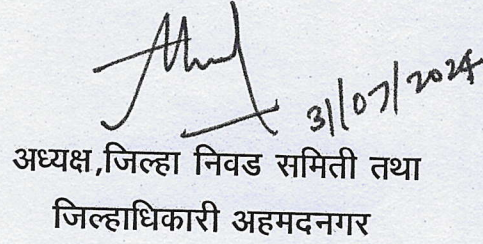 31/07/2024
अध्यक्ष,जिल्हा निवड समिती तथा
जिल्हाधिकारी अहमदनगर